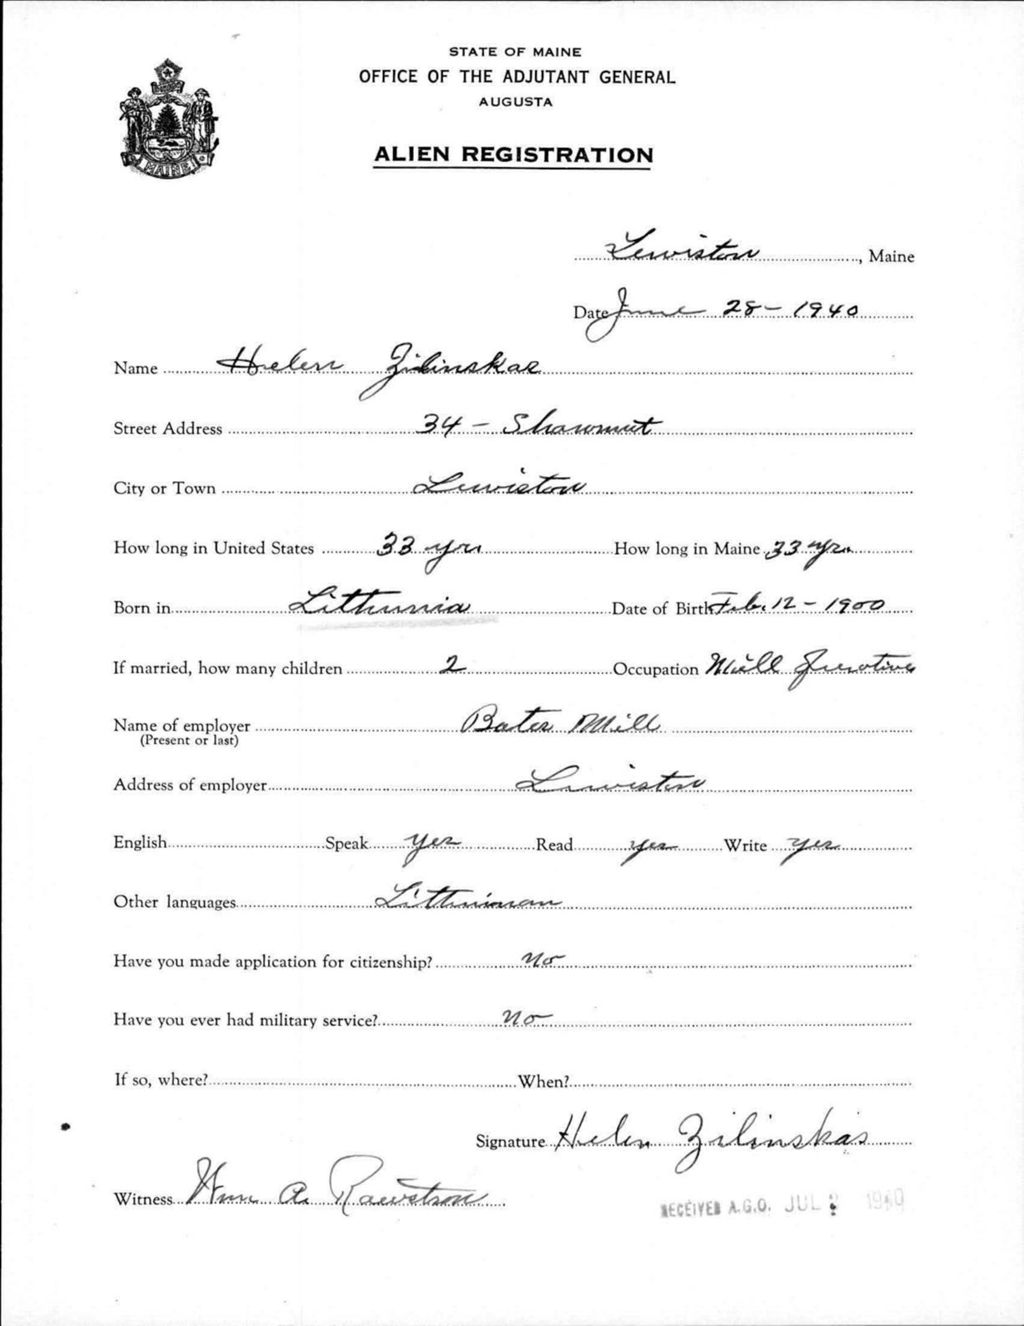 STATE OF MAINE
OFFICE OF THE ADJUTANT GENERAL
AUGUSTA
ALIEN REGISTRATION
MAINE
Lewiston, Maine
Date June 28 - 1940
Name Helen Zilinskas
Street Address 34 - Shawmut
City or Town Lewiston
How long in United States 33 yrs How long in Maine 33 yrs.
Born in Lithunia Date of Birth Feb. 12 - 1900
If married, how many children 2 Occupation Mill
Name of employer Bates Mill
(Present or last)
Address of employer Lewiston
English Speak yes Read yes Write yes
Other languages Lithunian
Have you made application for citizenship? No
Have you ever had military service? No
If so, where? When?
Signature Helen Zilinskas
Witness Wm A. Rawstron
RECEIVED A.G.O. JUL 2 1940